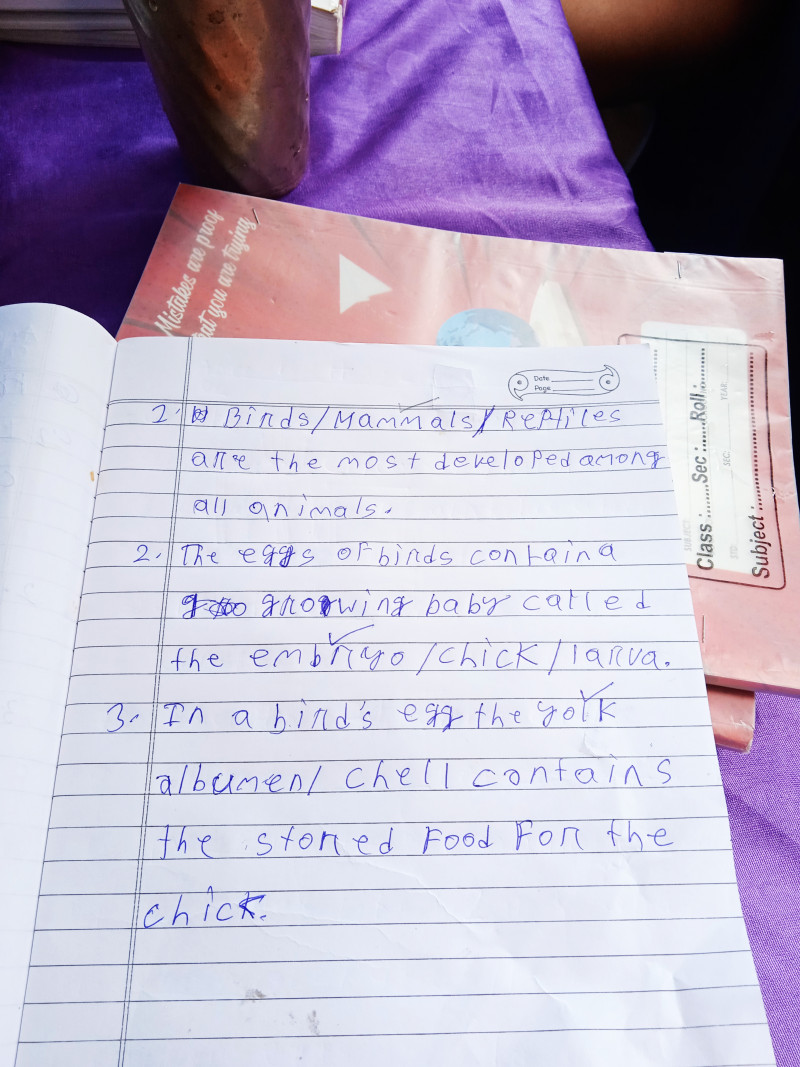 Mistakes are proof
that you are trying
Date
Page
SUBJECT:
Class : Sec : Roll :
STD: SEC: YEAR:
Subject :
1. Birds/Mammals/Reptiles
are the most developed among
all animals.
2. The eggs of birds contain a
growing baby called
the embriyo/chick/larva.
3. In a bird's egg the yolk
albumen/ chell contains
the stored Food For the
chick.